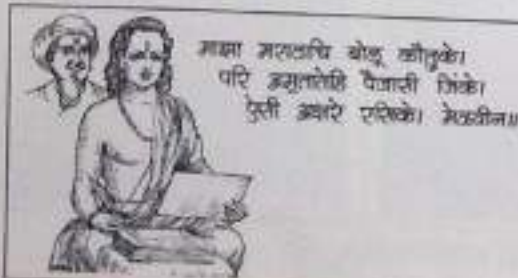 माझा मराठाचि बोलू कौतुके।
परि अमृतातेहि पैजासी जिंके।
ऐसी अक्षरे रसिके। मेळवीन॥